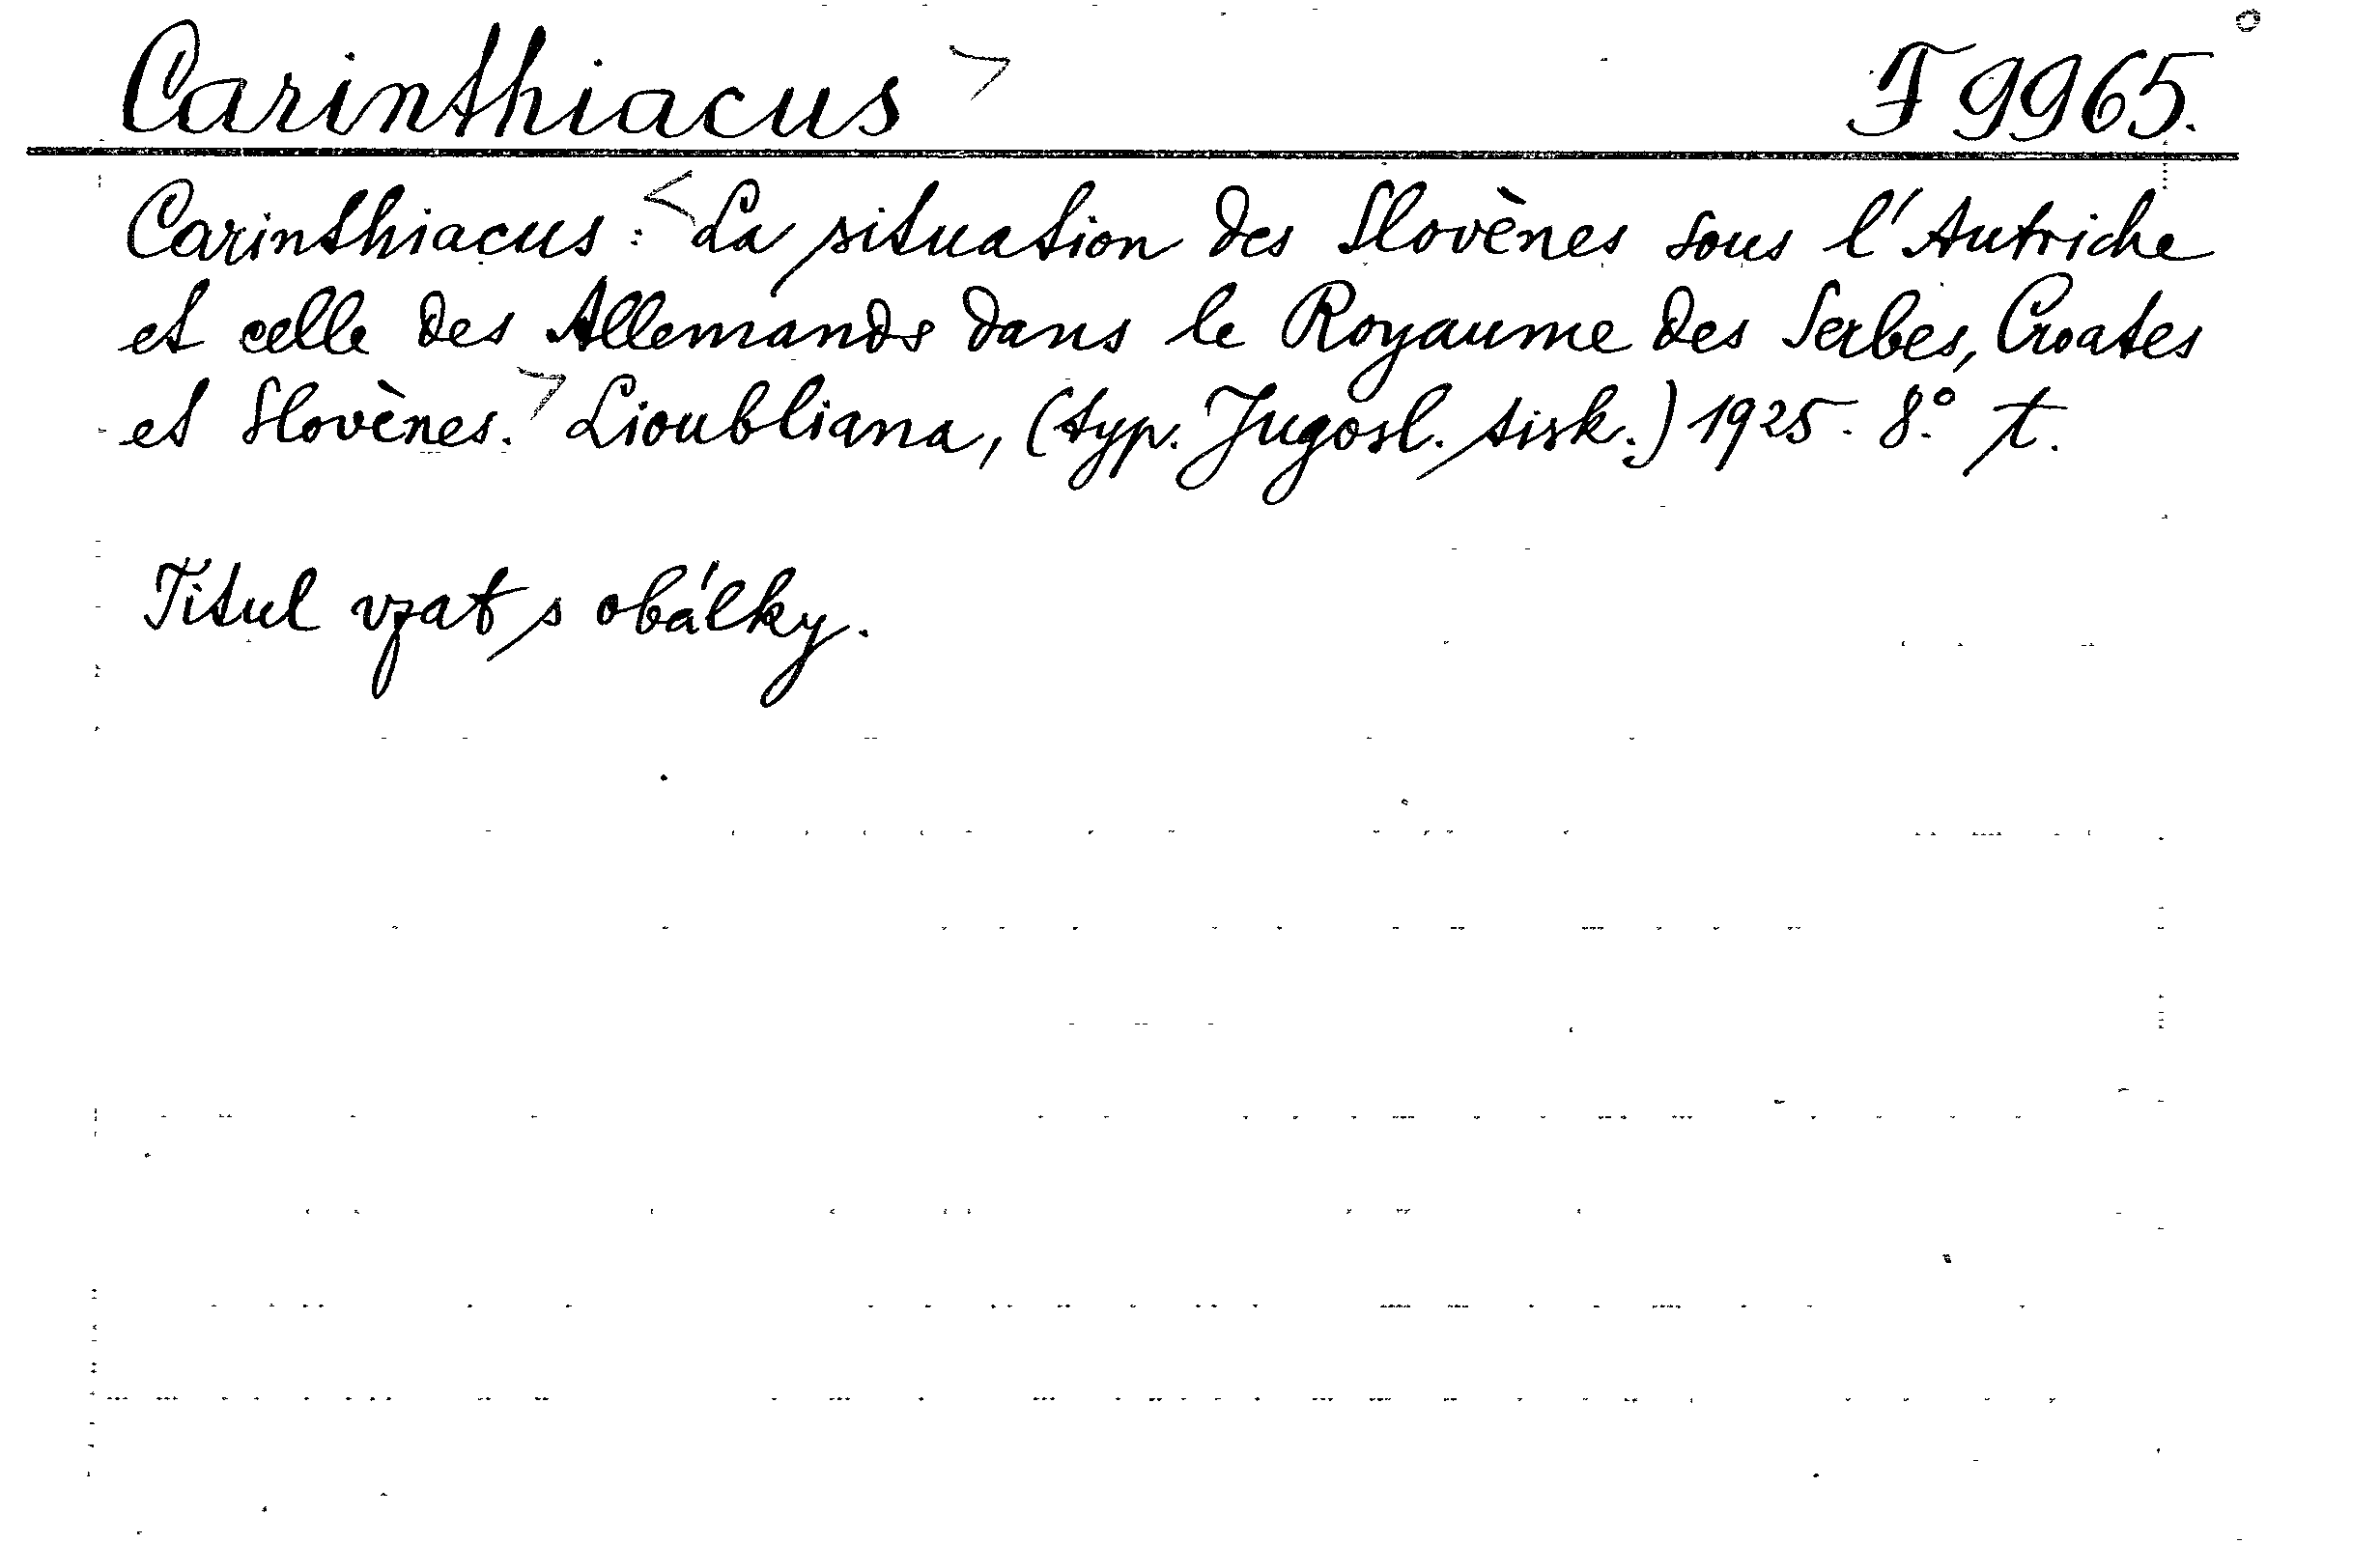 Carinthiacus > F 9965.
Carinthiacus: <La situation des Slovènes sous l'Autriche
et celle des Allemands dans le Royaume des Serbes, Croates
et Slovènes.> Lioubliana, (typ. Jugosl. tisk.) 1925. 8° t.
Titul vzat s obálky.